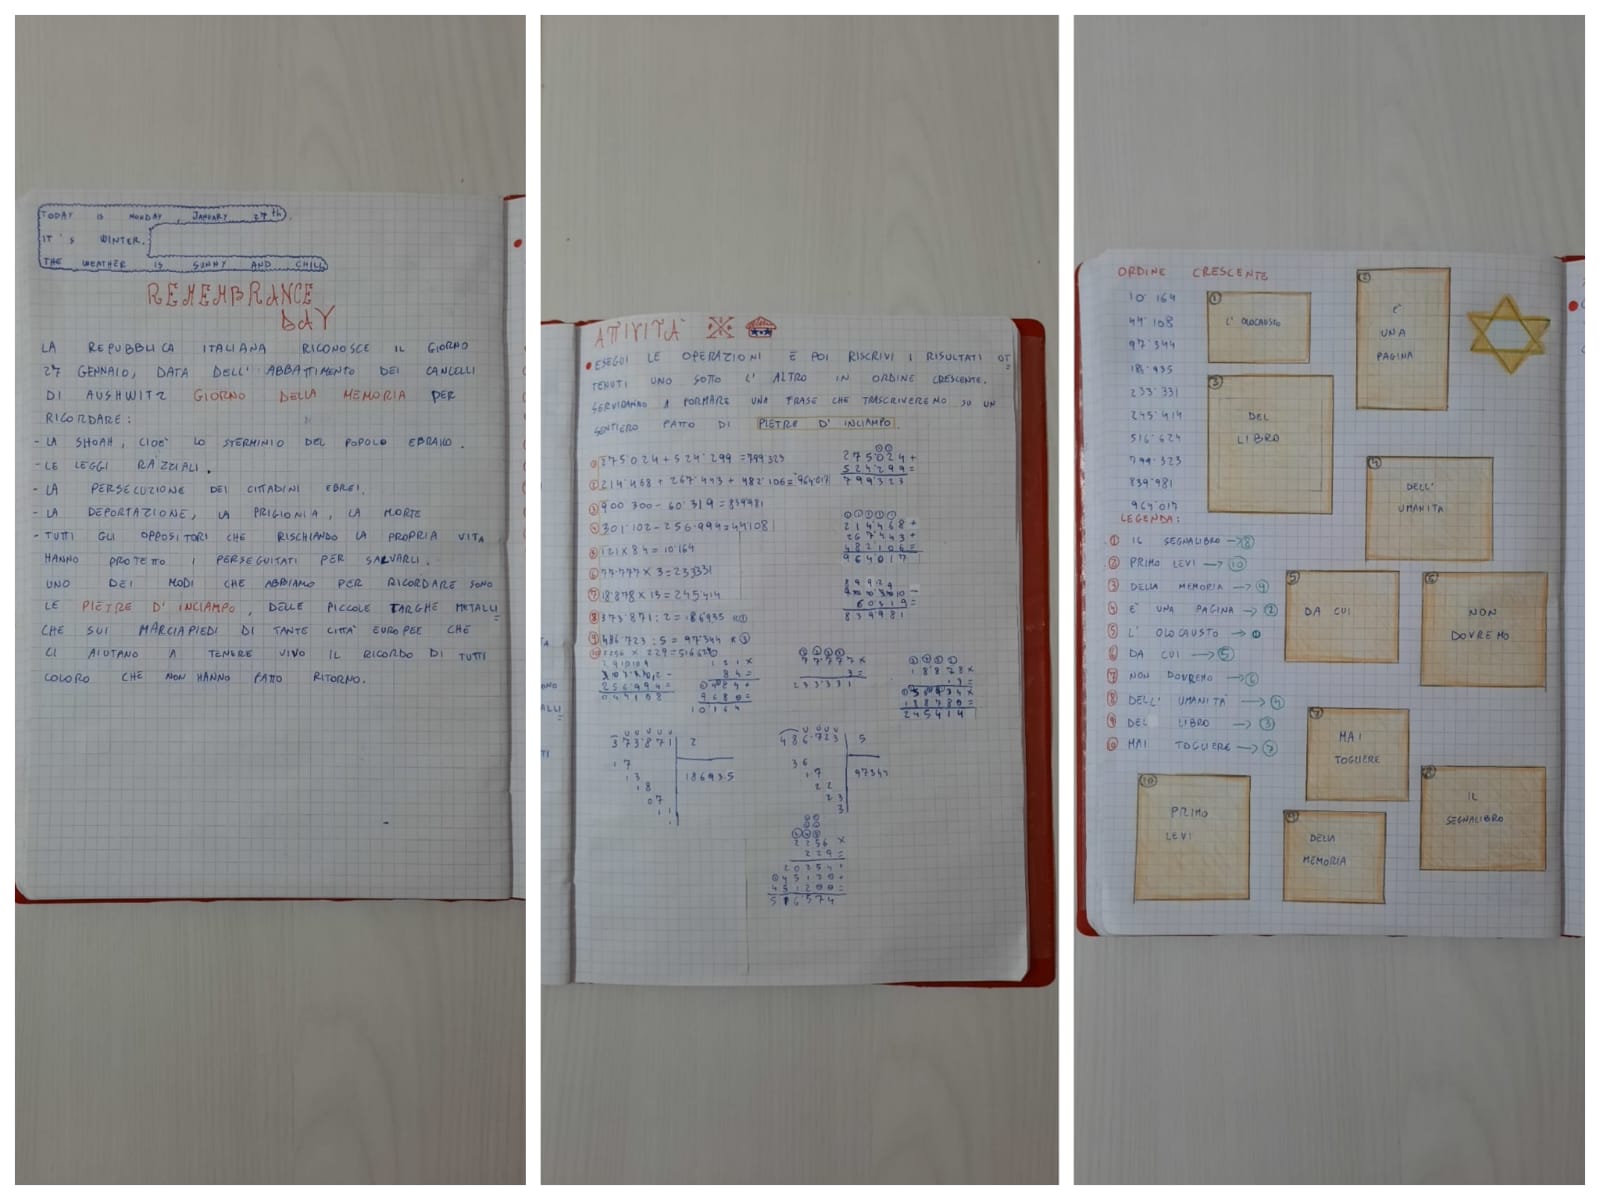 TODAY IS MONDAY, JANUARY 27th.
IT'S WINTER.
THE WEATHER IS SUNNY AND CHILL
REMEMBRANCE
DAY
LA REPUBBLICA ITALIANA RICONOSCE IL GIORNO
27 GENNAIO, DATA DELL'ABBATTIMENTO DEI CANCELLI
DI AUSHWITZ GIORNO DELLA MEMORIA PER
RICORDARE:
- LA SHOAH, CIOE' LO STERMINIO DEL POPOLO EBRAICO.
- LE LEGGI RAZZIALI.
- LA PERSECUZIONE DEI CITTADINI EBREI.
- LA DEPORTAZIONE, LA PRIGIONIA, LA MORTE
- TUTTI GLI OPPOSITORI CHE RISCHIANDO LA PROPRIA VITA
HANNO PROTETTO I PERSEGUITATI PER SALVARLI.
UNO DEI MODI CHE ABBIAMO PER RICORDARE SONO
LE PIETRE D'INCIAMPO, DELLE PICCOLE TARGHE METALLI
CHE SUI MARCIAPIEDI DI TANTE CITTÀ EUROPEE CHE
CI AIUTANO A TENERE VIVO IL RICORDO DI TUTTI
COLORO CHE NON HANNO FATTO RITORNO.
ATTIVITÀ
ESEGUI LE OPERAZIONI E POI RISCRIVI I RISULTATI OT
TENUTI UNO SOTTO L'ALTRO IN ORDINE CRESCENTE.
SERVIRANNO A FORMARE UNA FRASE CHE TRASCRIVEREMO SU UN
SENTIERO FATTO DI PIETRE D'INCIAMPO.
1 275˙024+524˙299=799323
2 214˙468+267˙443+482˙106=964017
3 900˙300-60˙319=839981
4 301˙102-256˙994=44108
5 121X84=10˙164
6 77˙777X3=233331
7 18˙878X13=245˙414
8 373˙871:2=186935 R1
9 486˙723:5=97˙344 R3
10 2256X229=516624
275024+
524299=
799323
214468+
267443+
482106=
964017
60319=
839981
256994=
044108
121X
84=
0484+
9680=
10164
77777X
3=
233331
18878X
13=
188780=
245414
373˙871 2
17 186935
13
18
07
11
486˙723 5
36
17
22
23
3
2256X
229=
45120+
451200=
516574
ORDINE CRESCENTE
10˙164
44˙108
97˙344
186˙935
233˙331
245˙414
516˙624
799˙323
839˙981
964˙017
LEGENDA:
1 IL SEGNALIBRO → 8
2 PRIMO LEVI → 10
3 DELLA MEMORIA → 9
4 E' UNA PAGINA → 2
5 L'OLOCAUSTO → 1
6 DA CUI → 5
7 NON DOVREMO → 6
8 DELL'UMANITÀ → 4
9 DEL LIBRO → 3
10 MAI TOGLIERE → 7
1
L'OLOCAUSTO
2
E'
UNA
PAGINA
3
DEL
LIBRO
4
DELL'
UMANITA
5
DA CUI
6
NON
DOVREMO
7
MAI
TOGLIERE
8
IL
SEGNALIBRO
9
DELLA
MEMORIA
10
PRIMO
LEVI